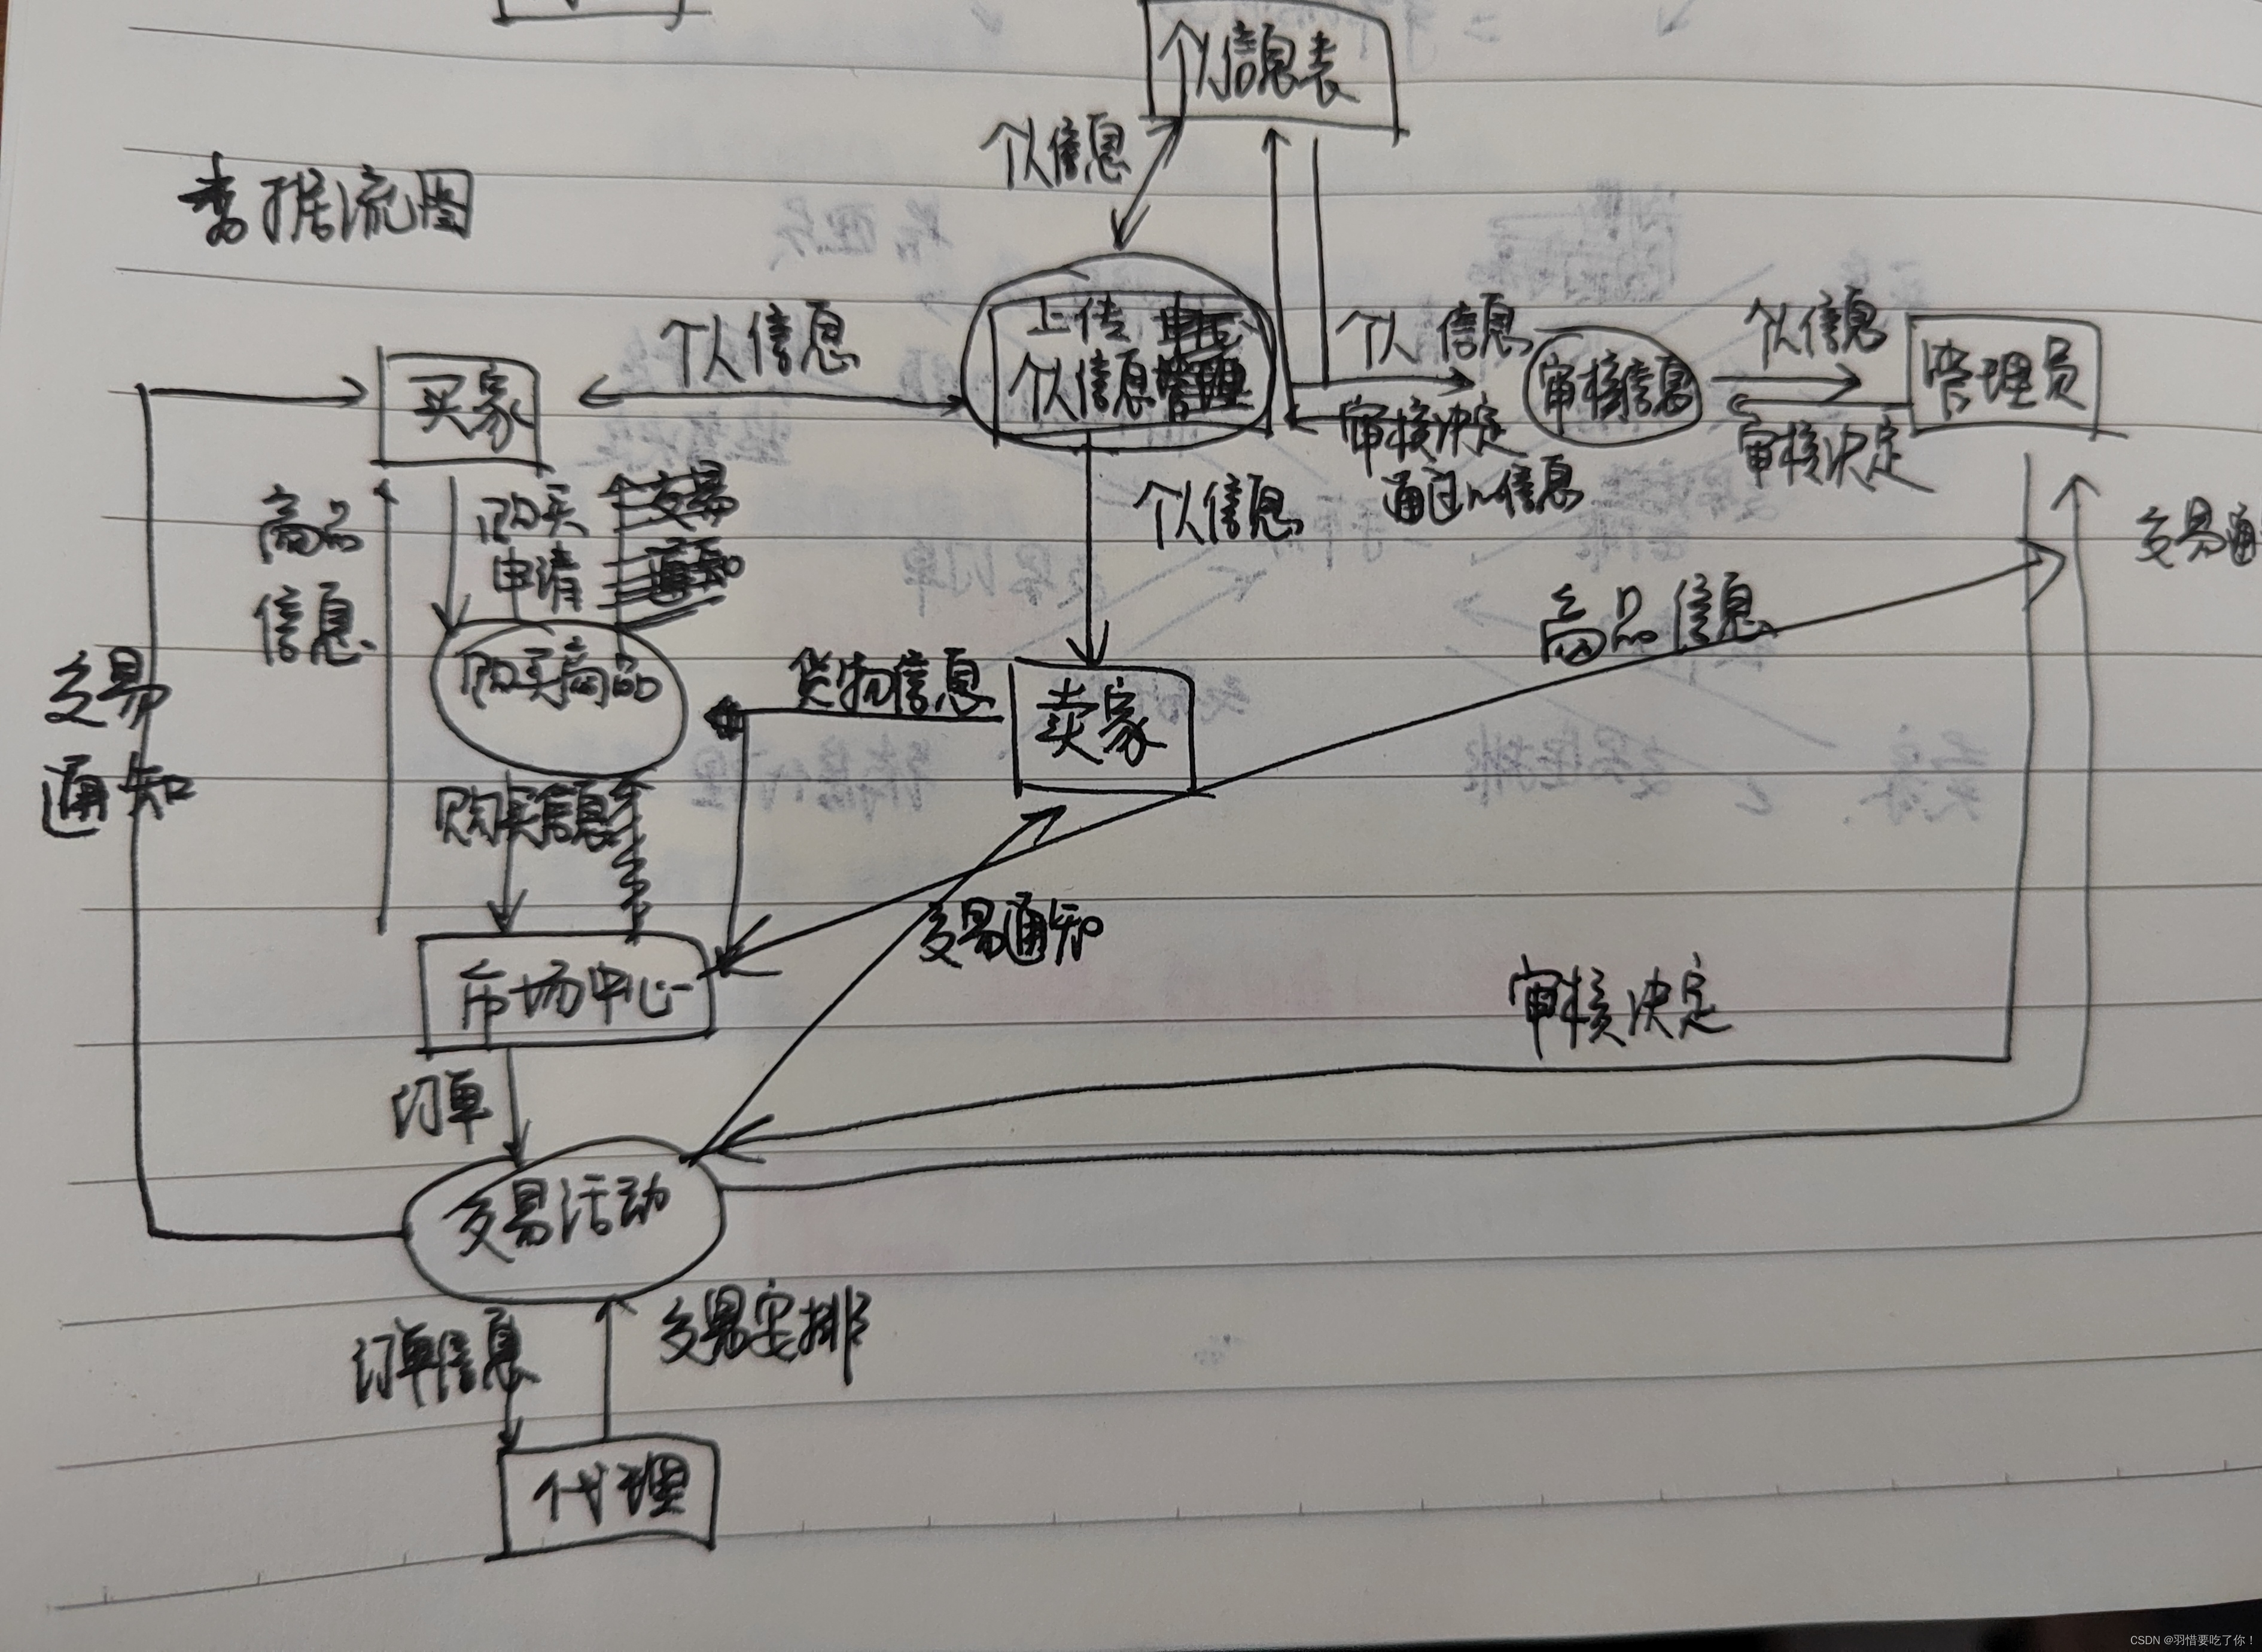 个人信息表
个人信息
数据流图
个人信息
上传
个人信息
个人信息
审核信息
个人信息
管理员
买家
审核决定
通过个人信息
审核决定
个人信息
商品
信息
购买
申请
交易
通知
交易通
商品信息
购买商品
货物信息
卖家
交易
通知
购买信息
交易通知
市场中心
审核决定
订单
交易活动
订单信息
交易安排
代理
CSDN @羽惜要吃了你！